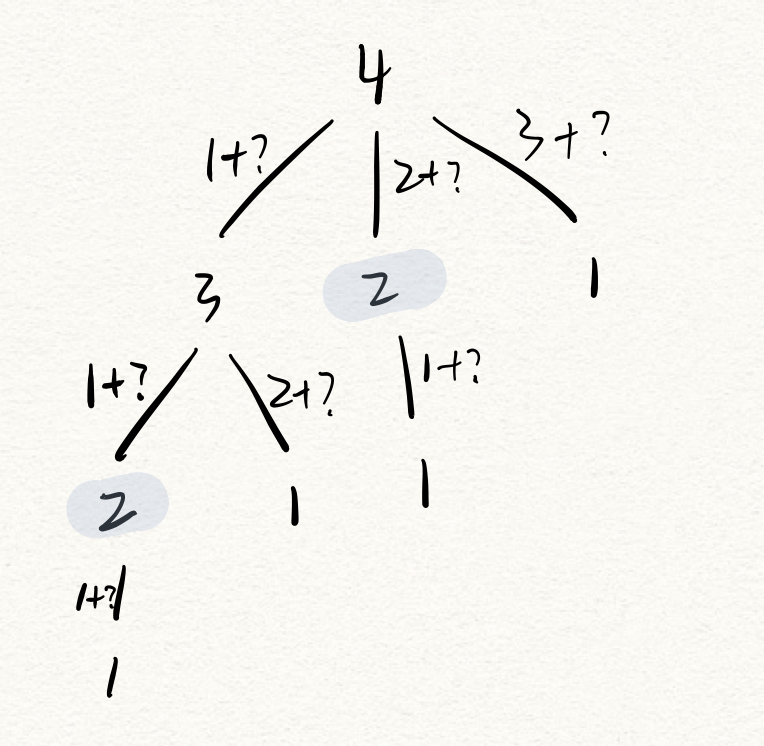 4
1+? 2+? 3+?
3 2 1
1+? 2+? 1+?
2 1 1
1+?
1